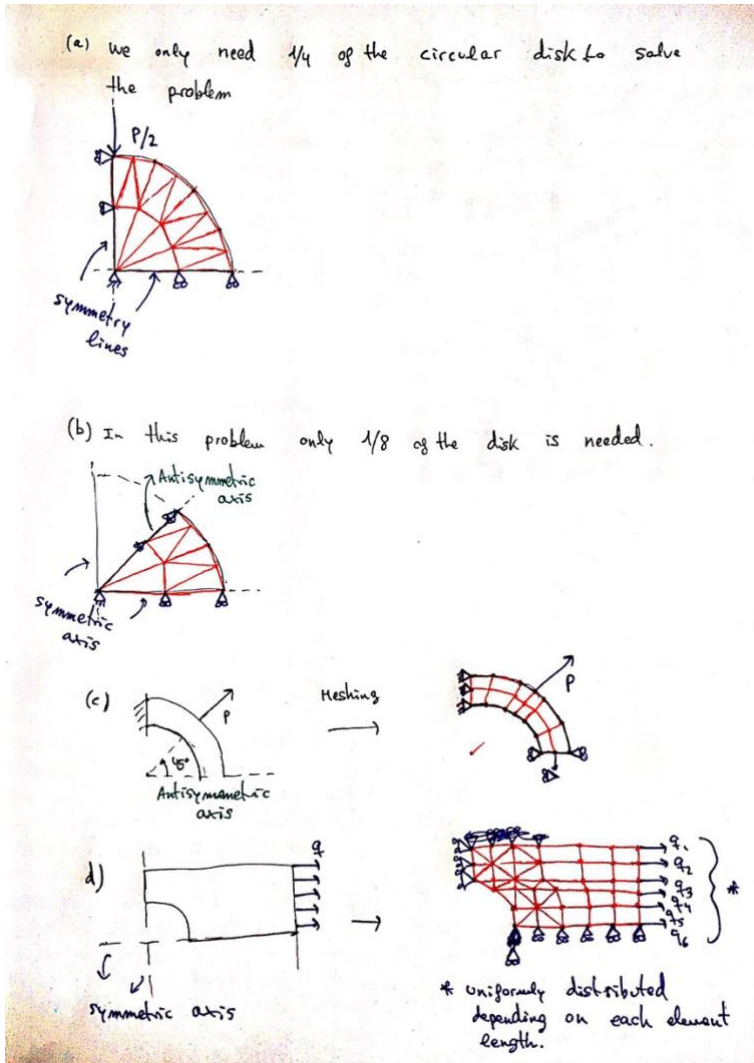 (a) We only need 1/4 of the circular disk to solve
the problem
P/2
symmetry
lines
(b) In this problem only 1/8 of the disk is needed.
Antisymmetric
axis
symmetric
axis
(c)
P
45°
Antisymmetric
axis
Meshing
P
d)
q
symmetric axis
q1
q2
q3
q4
q5
q6
*
* uniformly distributed
depending on each element
length.